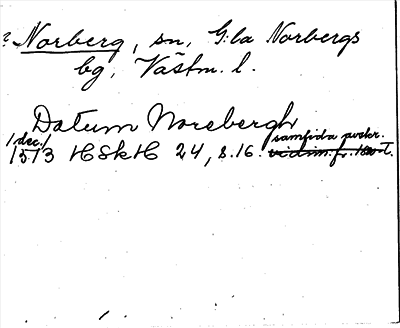 ? Norberg, sn, G:la Norbergs
bg, Västm. l.
Datum Norebergh
1 dec. samtida avskr.
1513 HSkH 24, s. 16. vidim. fr.